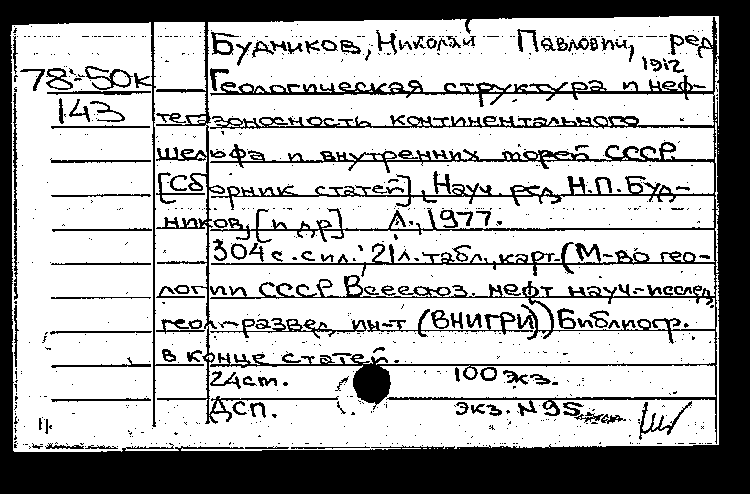 Будников, Николай Павлович, ред
1912
78-50к
Геологическая структура и неф-
143
тегазоносность континентального
шельфа и внутренних морей СССР.
[Сборник статей]. Науч. ред. Н.П. Буд-
ников, [и др] Л., 1977.
304 с. с ил.; 21 л. табл., карт. (М-во гео-
логии СССР. Всесоюз. нефт науч-исслед.
геол-развед. ин-т (ВНИГРИ)) Библиогр.
в конце статей.
24см. 100 экз.
ДСП. экз. N 95